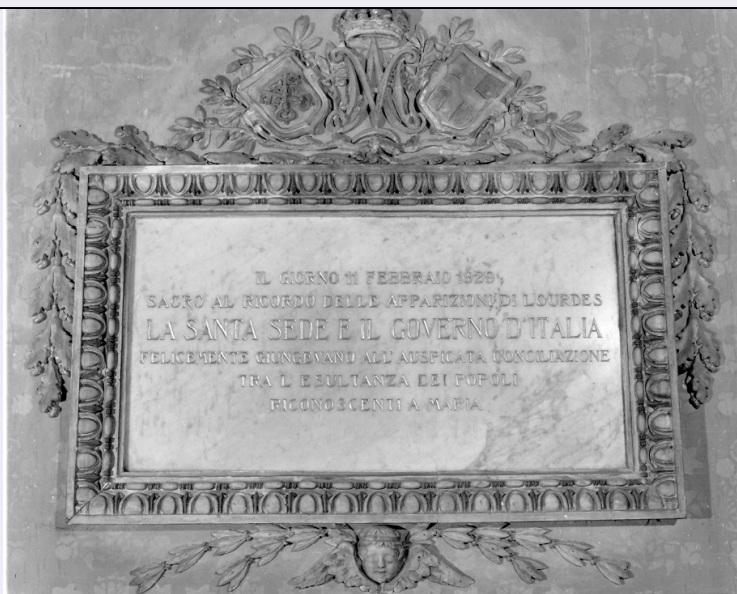 IL GIORNO 11 FEBBRAIO 1929
SACRO AL RICORDO DELLE APPARIZIONI DI LOURDES
LA SANTA SEDE E IL GOVERNO D'ITALIA
FELICEMENTE GIUNGEVANO ALL'AUSPICATA CONCILIAZIONE
TRA L'ESULTANZA DEI POPOLI
RICONOSCENTI A MARIA